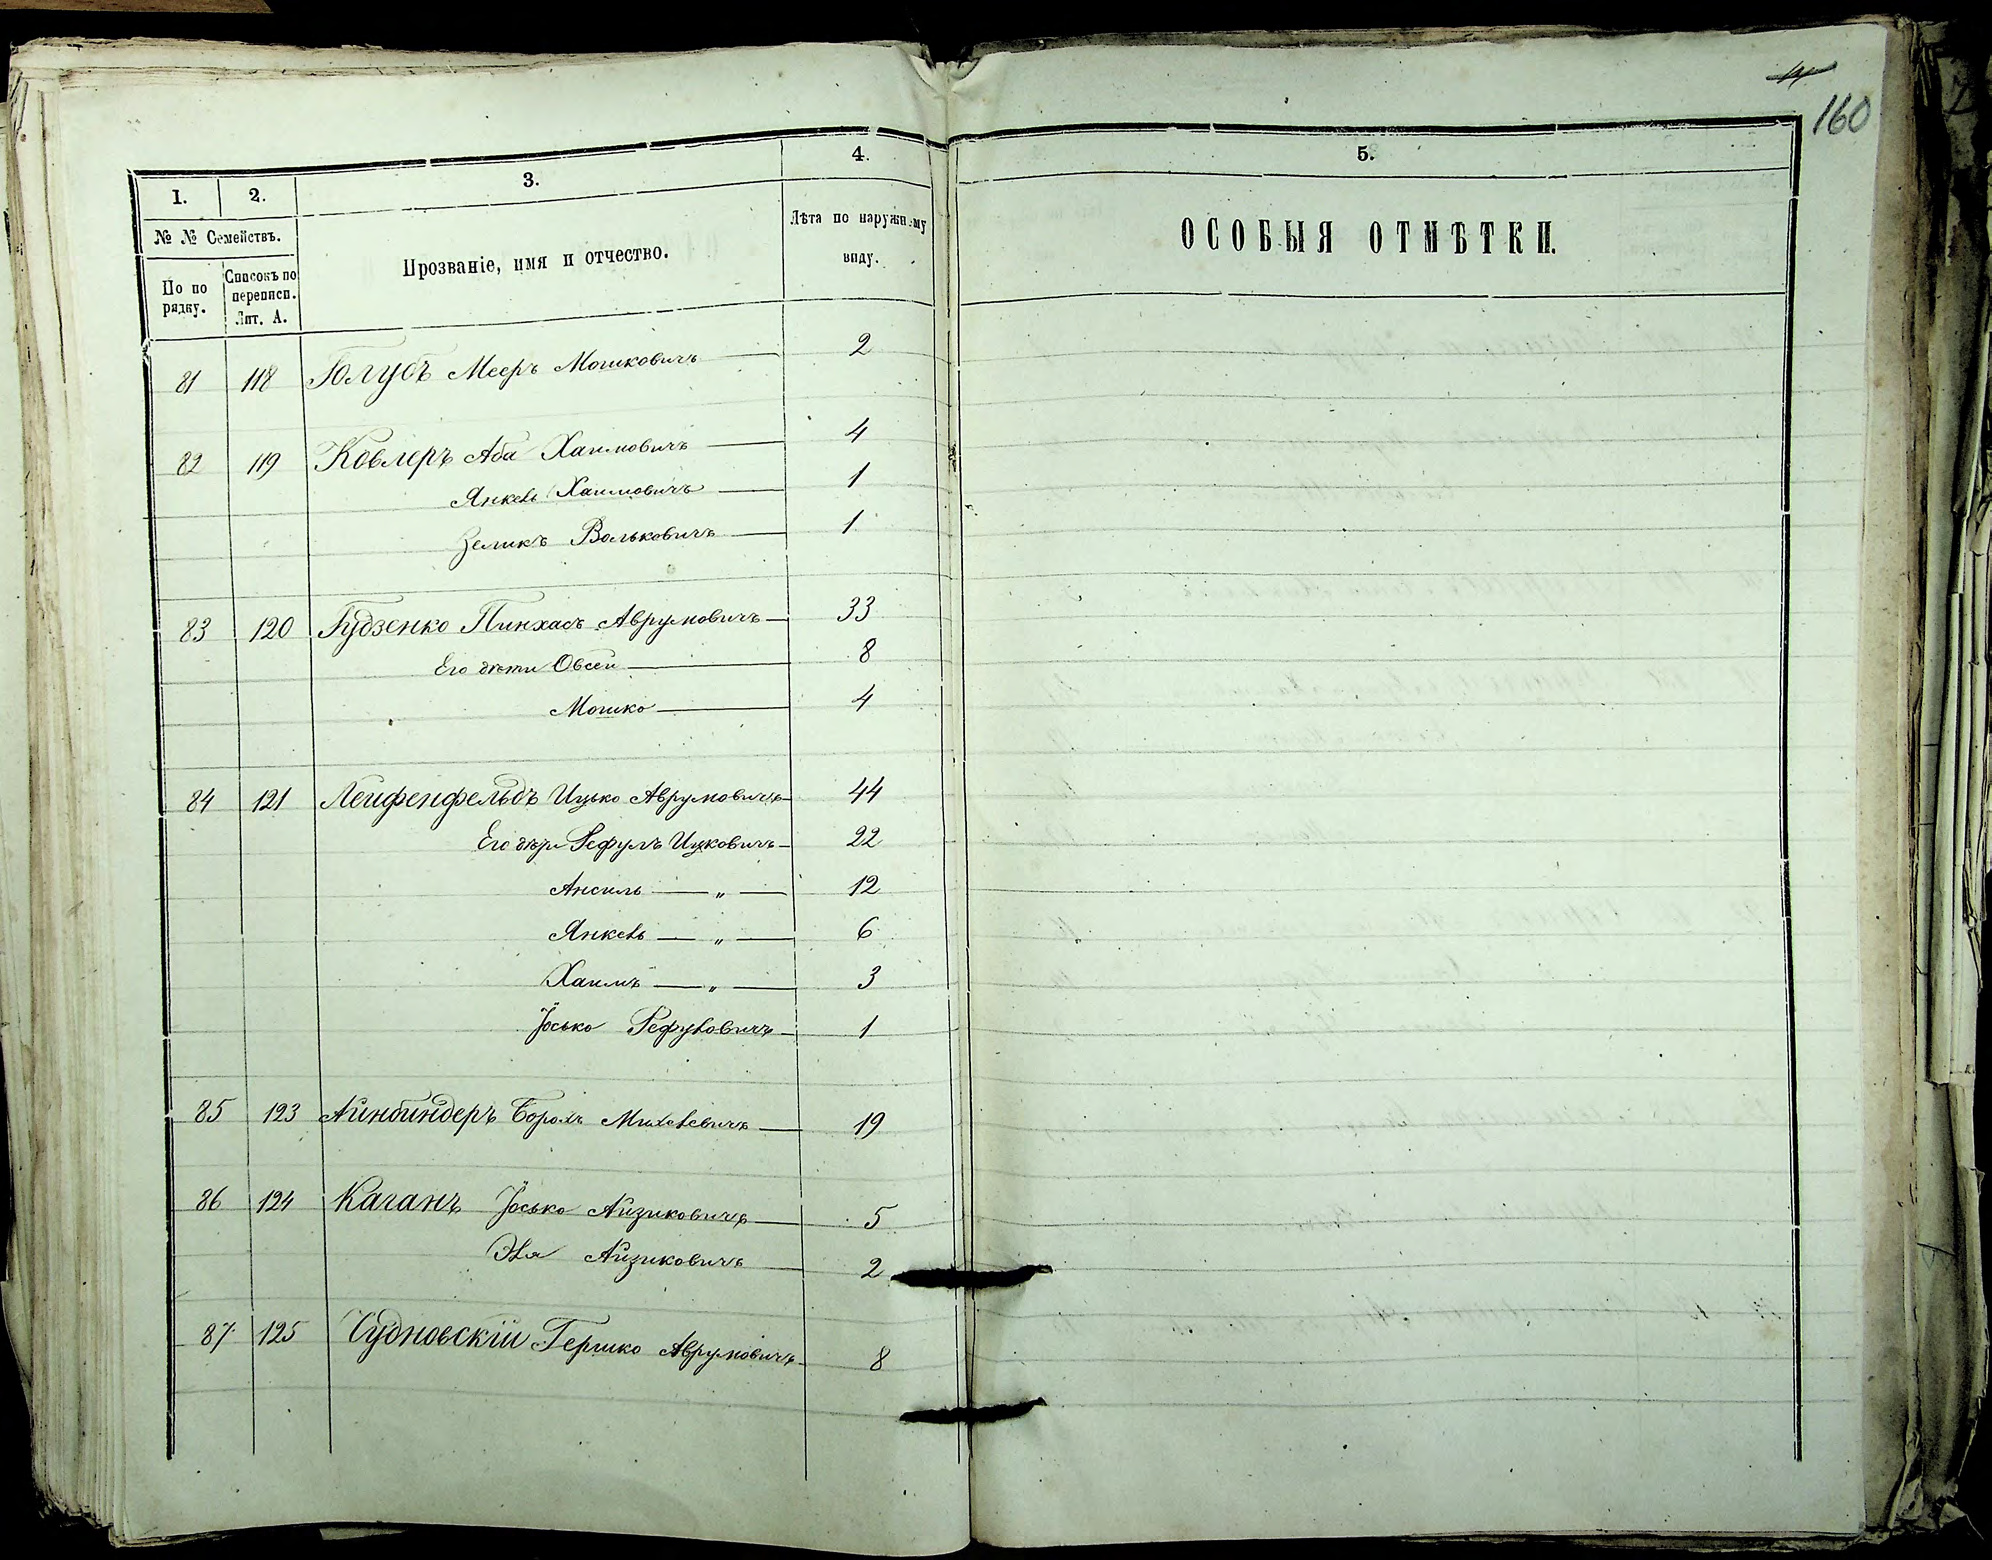 160
1. 2. 3. 4. 5.
№ № Семействъ.
По порядку.
Списокъ по переписи. Лит. А.
Прозваніе, имя и отчество.
Лѣта по наружному виду.
ОСОБЫЯ ОТМѢТКИ.
81 118 Голубъ Мееръ Мошковичъ 2
82 119 Ковлеръ Аба Хаимовичъ 4
Янкель Хаимовичъ 1
Зеликъ Вольковичъ 1
83 120 Гудзенко Пинхасъ Аврумовичъ 33
Его дѣти Овсей 8
Мошко 4
84 121 Лейфенфельдъ Ицько Аврумовичъ 44
Его дѣти Рефулъ Ицковичъ 22
Ансиль — „ — 12
Янкель — „ — 6
Хаимъ — „ — 3
Іосько Рефуловичъ 1
85 123 Айнбиндеръ Борохъ Михелевичъ 19
86 124 Каганъ Іосько Айзиковичъ 5
Эля Айзиковичъ 2
87 125 Чудновскій Гершко Аврумовичъ 8